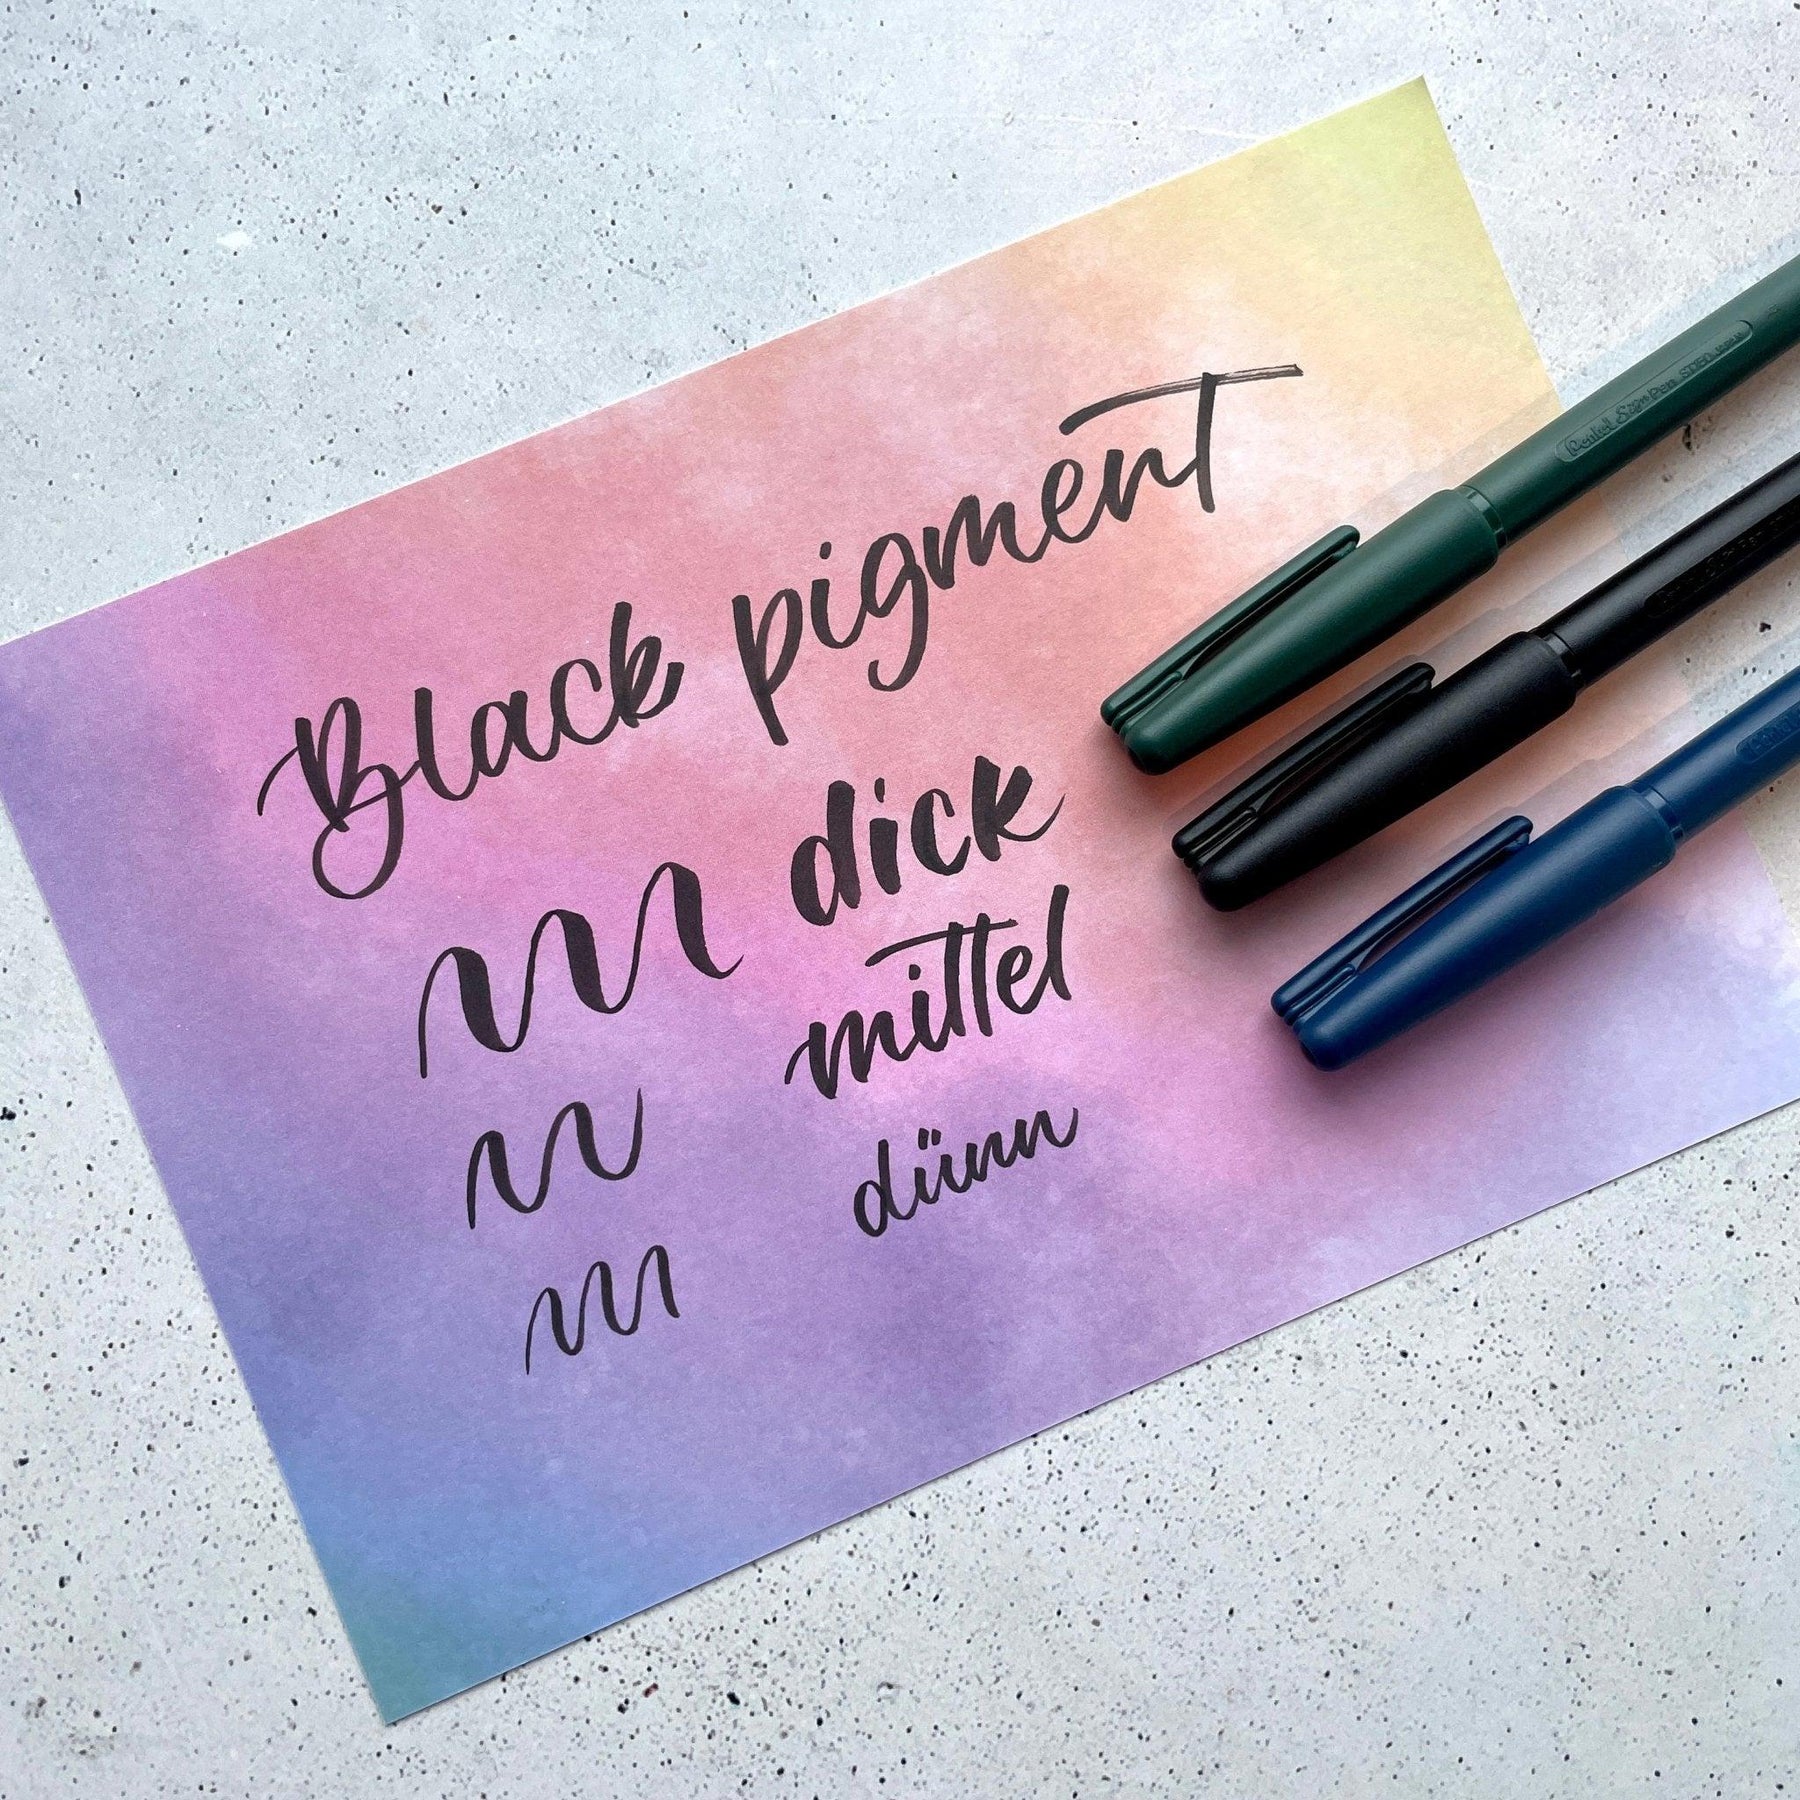 Black pigment
dick
mittel
dünn
Pentel Sign Pen
Pentel